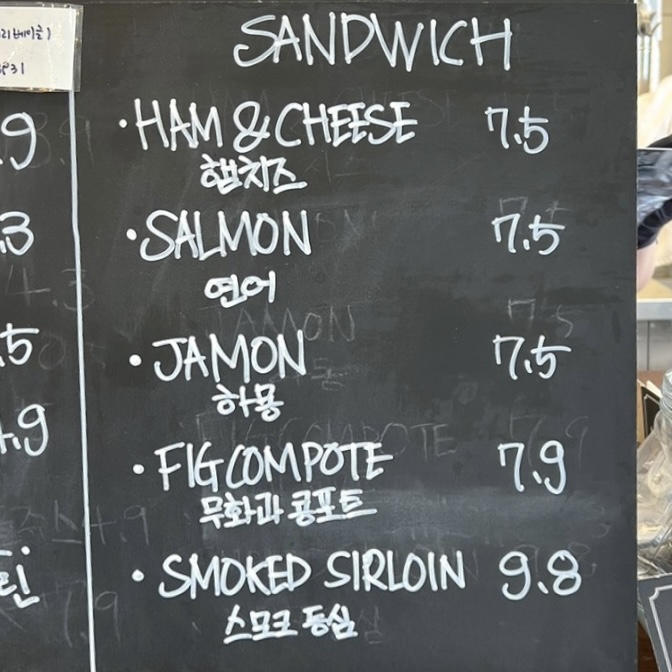 SANDWICH
· HAM & CHEESE 7.5
햄치즈
· SALMON 7.5
연어
· JAMON 7.5
하몽
· FIG COMPOTE 7.9
무화과 콩포트
· SMOKED SIRLOIN 9.8
스모크 등심
.9
.3
.5
4.9